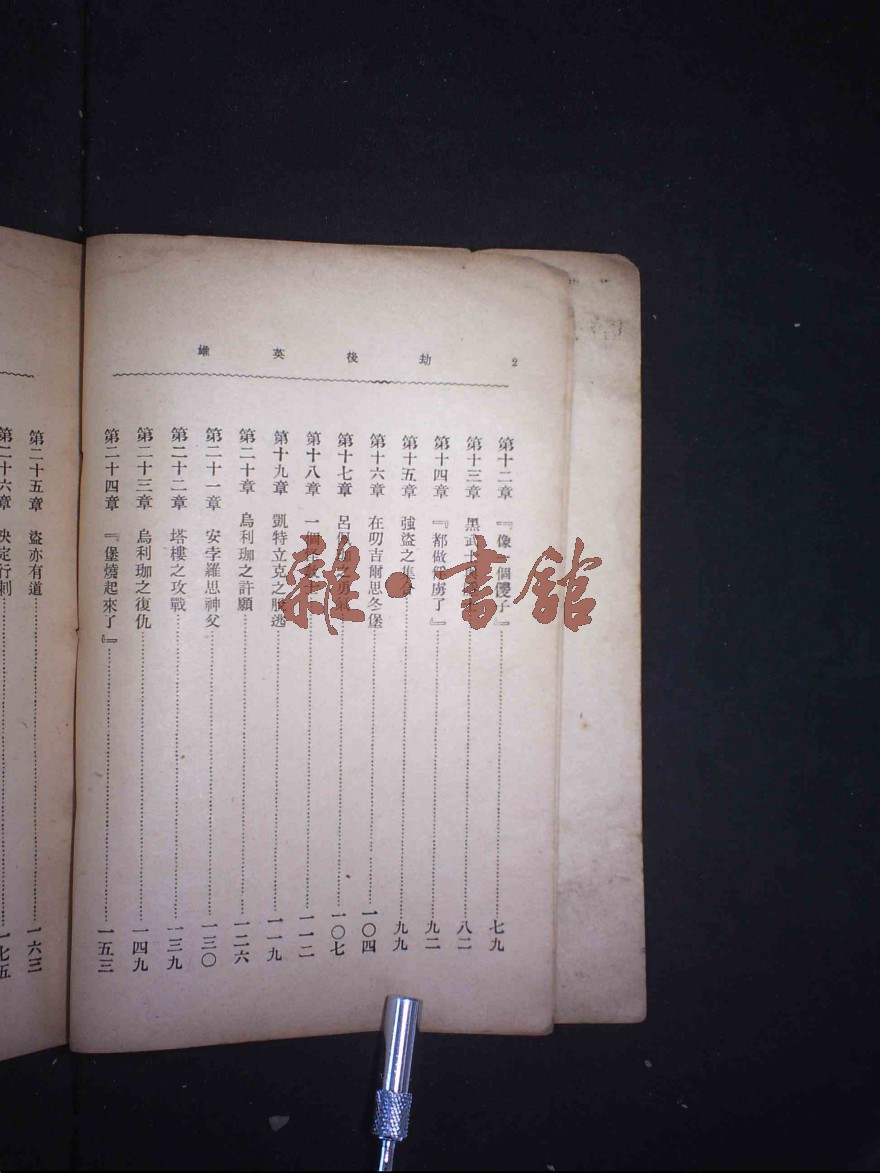 劫後英雄 2
第十二章 『像一個儍子』 七九
第十三章 黑武士 八二
第十四章 『都做俘虜了』 九二
第十五章 強盜之集合 九九
第十六章 在叨吉爾思冬堡 一〇四
第十七章 呂佩珈之勇 一〇七
第十八章 一個 一一二
第十九章 凱特立克之脫逃 一一九
第二十章 烏利珈之許願 一二六
第二十一章 安孛羅思神父 一三〇
第二十二章 塔樓之攻戰 一三九
第二十三章 烏利珈之復仇 一四九
第二十四章 『堡燒起來了』 一五三
第二十五章 盜亦有道 一六三
第二十六章 決定行刺 一七五
雜·書館